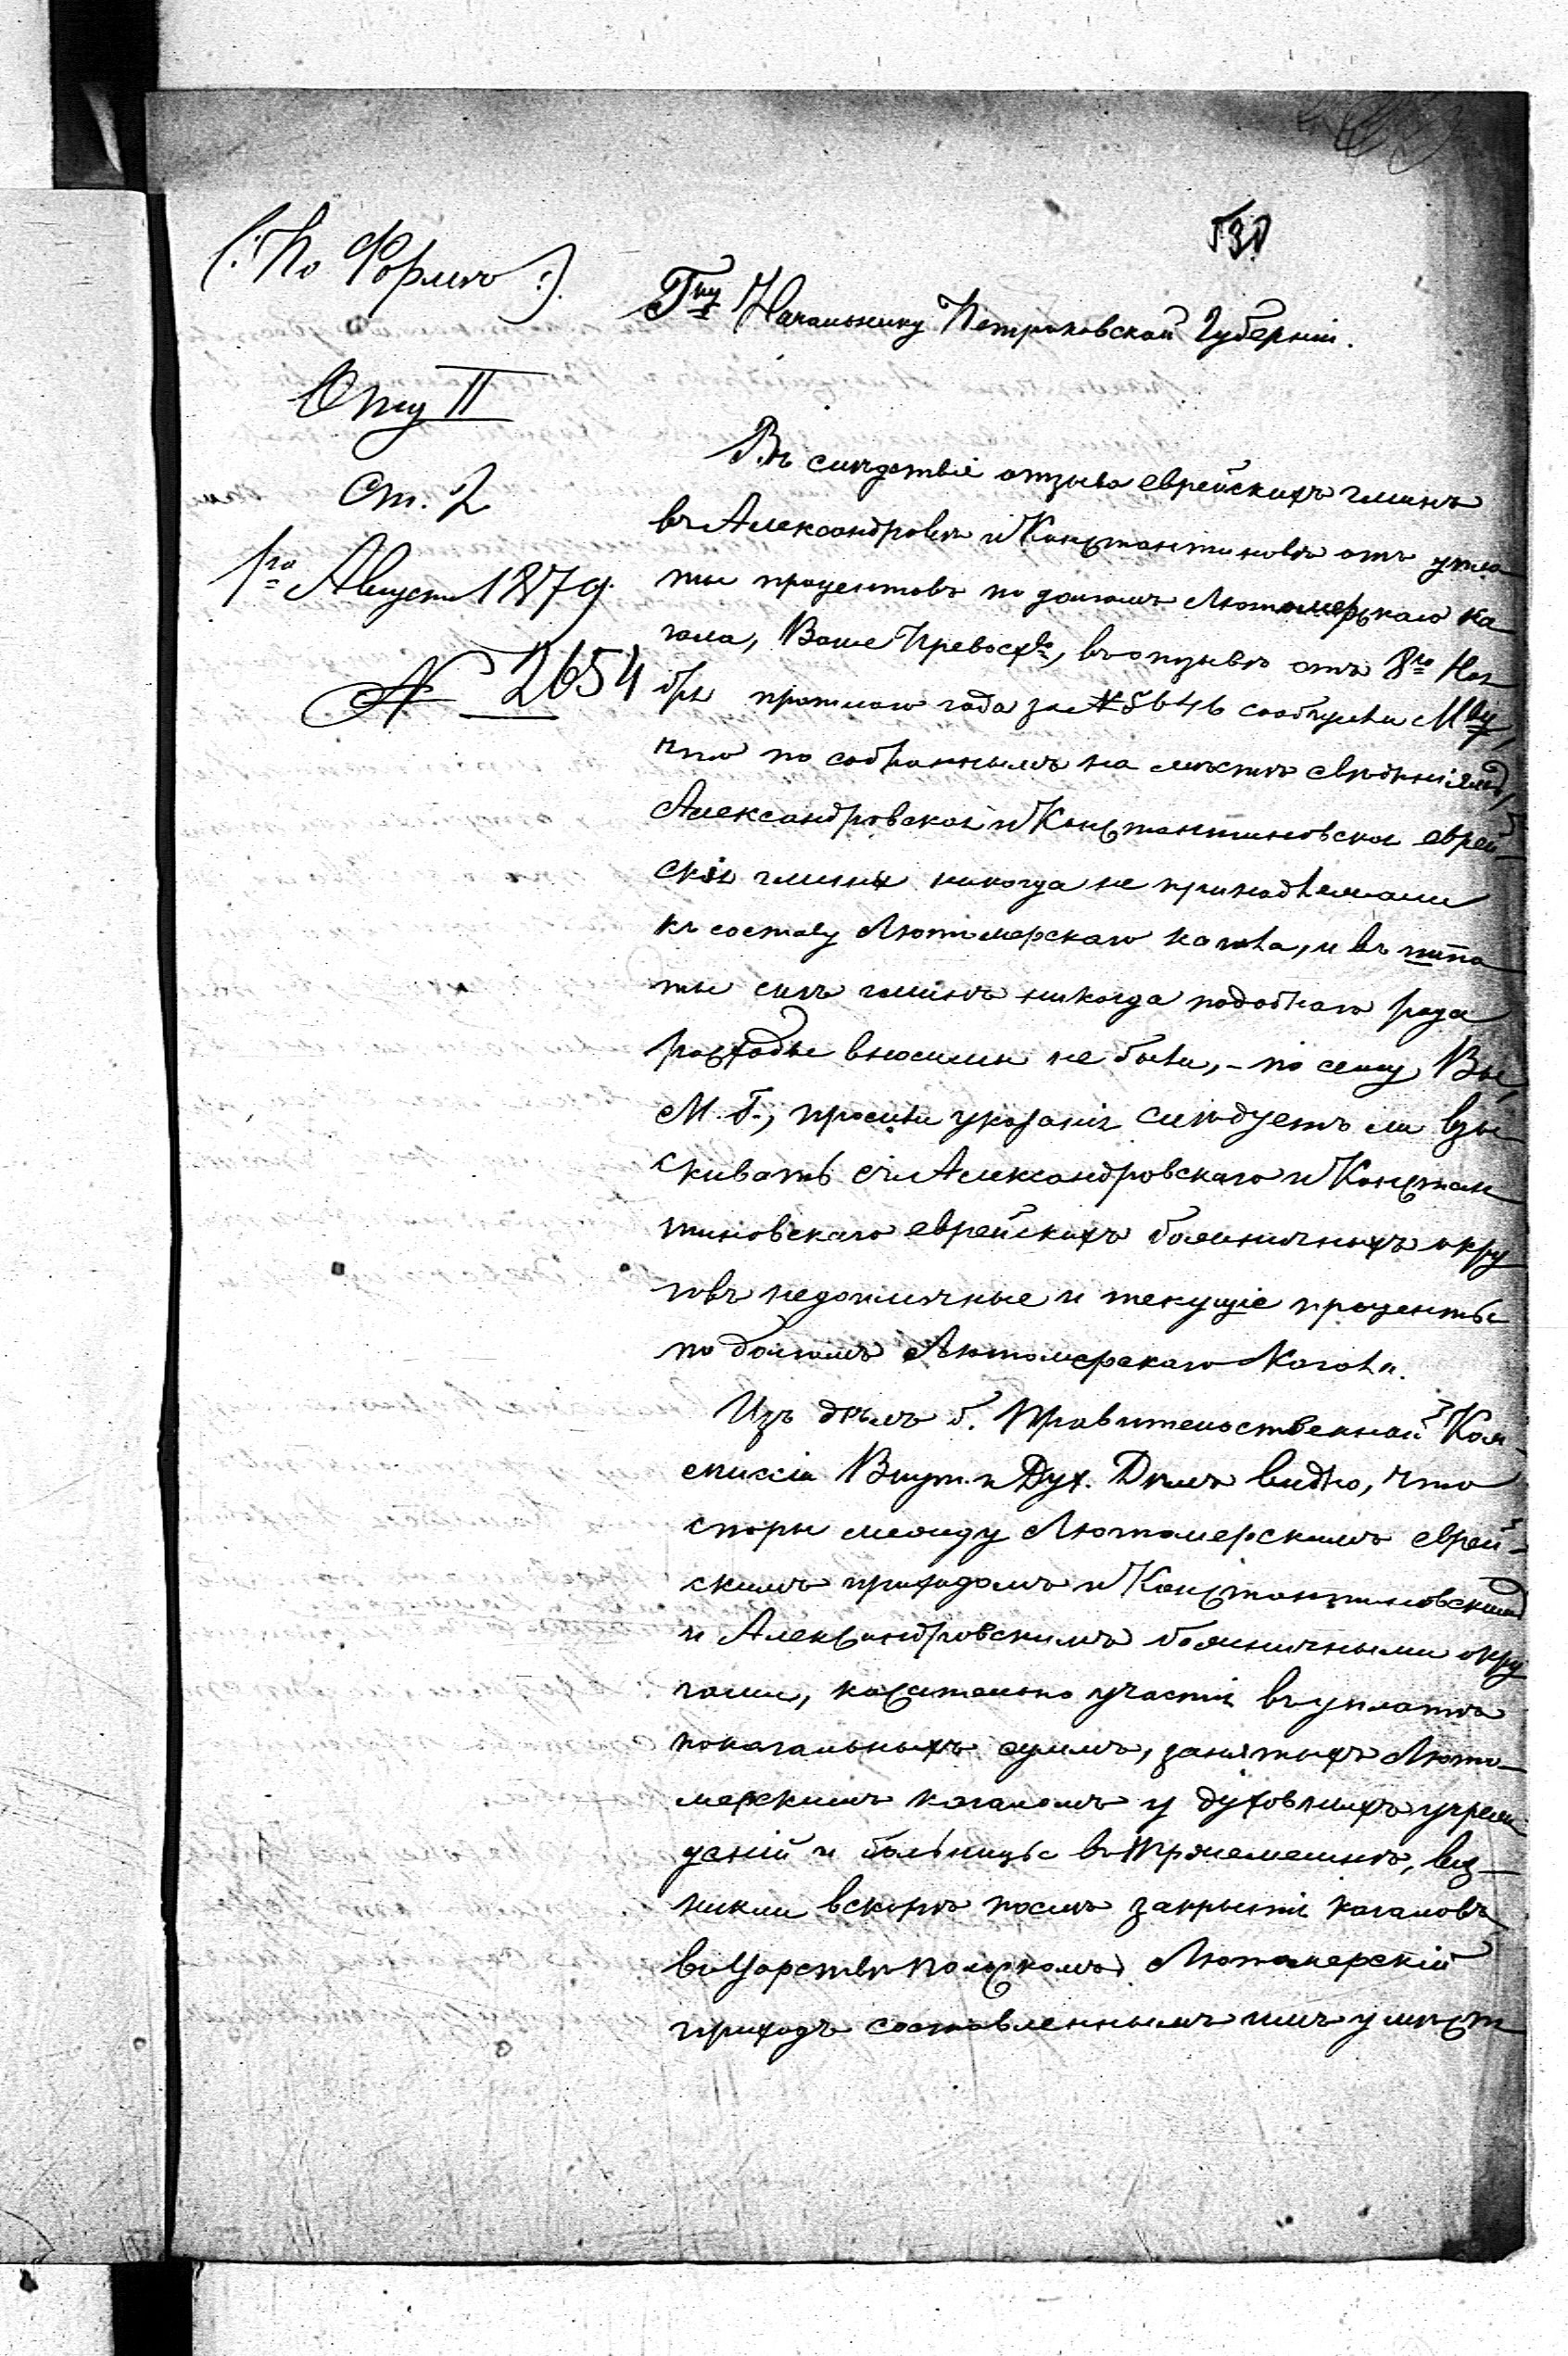 (: По Формѣ :)
Отд II
Ст. 2
1го Август 1879.
№ 2654
Гну Начальнику Петроковской Губерніи.
Въ слѣдствіе отзыва еврейскихъ гминъ
въ Александровѣ и Константиновѣ отъ упла
ты процентовъ по долгамъ Лютомерскаго ка
гала, Ваше Превосхво, въ отзывѣ отъ 8го Ноя
бря прошлаго года за № 5646 сообщили Мву,
что по собраннымъ на мѣстѣ свѣдѣніямъ,
Александровская и Константиновская еврей-
скія гмины никогда не принадлежали
къ составу Лютомерскаго кагала, и въ шта
ты сихъ гминъ никогда подобнаго рода
расходы вносимы не были, - по сему Вы,
М. Г., просили указанія слѣдуетъ ли взы
скивать съ Александровскаго и Констан
тиновскаго еврейскихъ божничныхъ окру
говъ недоимочные и текущіе проценты
по долгамъ Лютомерскаго Кагала.
Изъ дѣлъ б. Правительственной Ком-
миссіи Внут. и Дух. Дѣлъ видно, что
споры между Лютомерскимъ еврей-
скимъ приходомъ и Константиновскимъ
и Александровскимъ божничными окру
гами, касательно участія въ уплатѣ
покагальныхъ суммъ, занятыхъ Люто-
мерскимъ кагаломъ у духовныхъ учреж
деній и больницы въ, воз-
никли вскорѣ послѣ закрытія кагаловъ
въ Царствѣ Польскомъ. Лютомерскій
приходъ составленнымъ имъ у мѣст